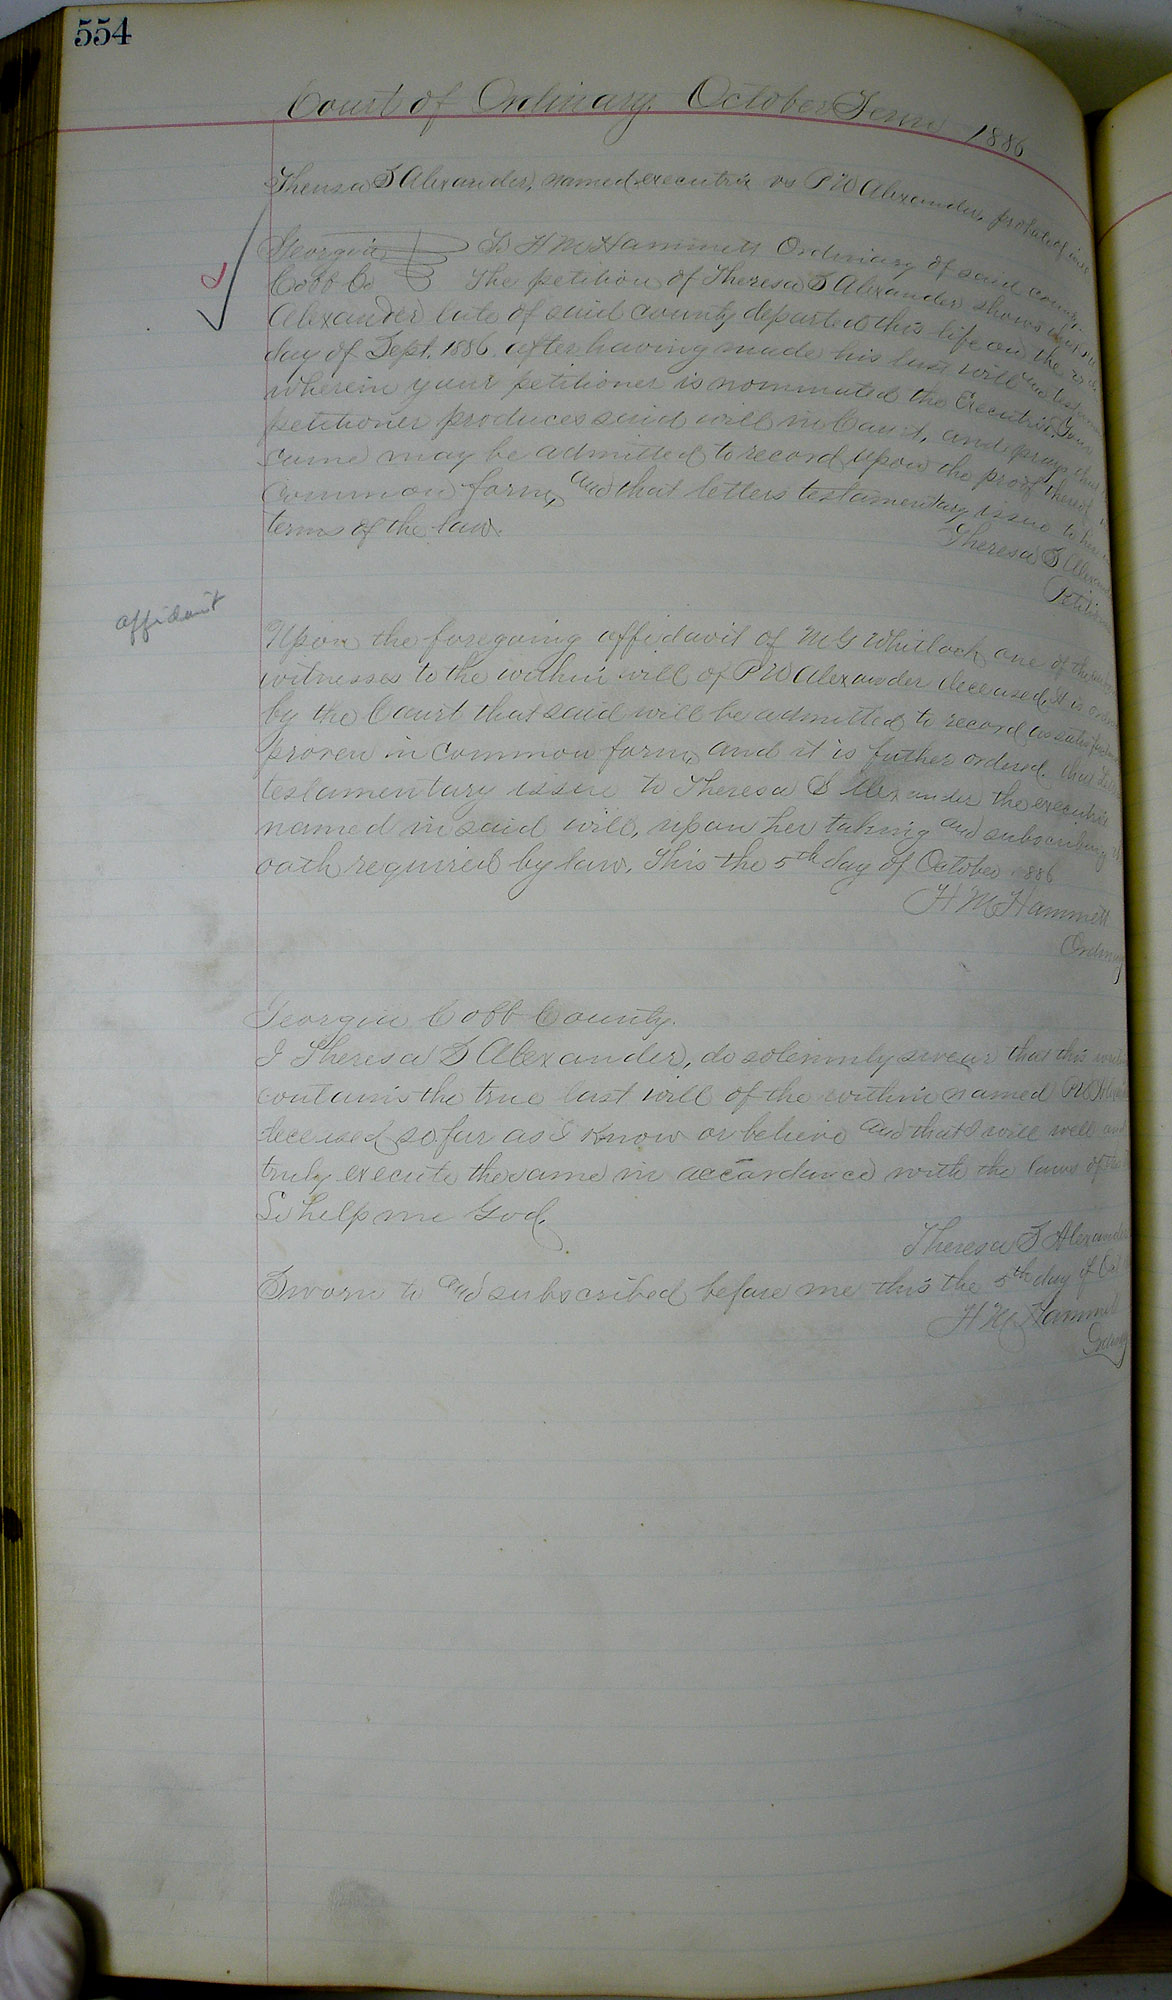 554
Court of Ordinary October Term 1886
Theresa S Alexander, named executrix vs P W Alexander, probate of will
Georgia To H M Hammett Ordinary of said county.
Cobb Co The petition of Theresa S Alexander shows that
Alexander late of said county departed this life on the
day of Sept. 1886 after having made his last will and
wherein your petitioner is nominated the Executrix. Your
petitioner produces said will in Court, and prays that
same may be admitted to record upon the proof thereof in
Common form, and that letters testamentary issue to her in
terms of the law.
Theresa S
affidavit
Upon the foregoing affidavit of M G Whitlock one of the
witnesses to the within will of P W Alexander deceased, it is
by the Court that said will be admitted to record as
proven in common form, and it is futher ordered that
testamentary issue to Theresa S Alexander the executrix
named in said will, upon her taking and subscribing the
oath required by law. This the 5th day of October 1886
H M Hammett
Ordinary
Georgia Cobb County.
I Theresa S Alexander, do solemnly swear that this
contains the true last will of the within named P W
deceased so far as I know or believe and that I will well and
truly execute the same in accordance with the laws of
So help me God.
Theresa S Alexander
Sworn to and subscribed before me this the 5th day of Oct
H M Hammett